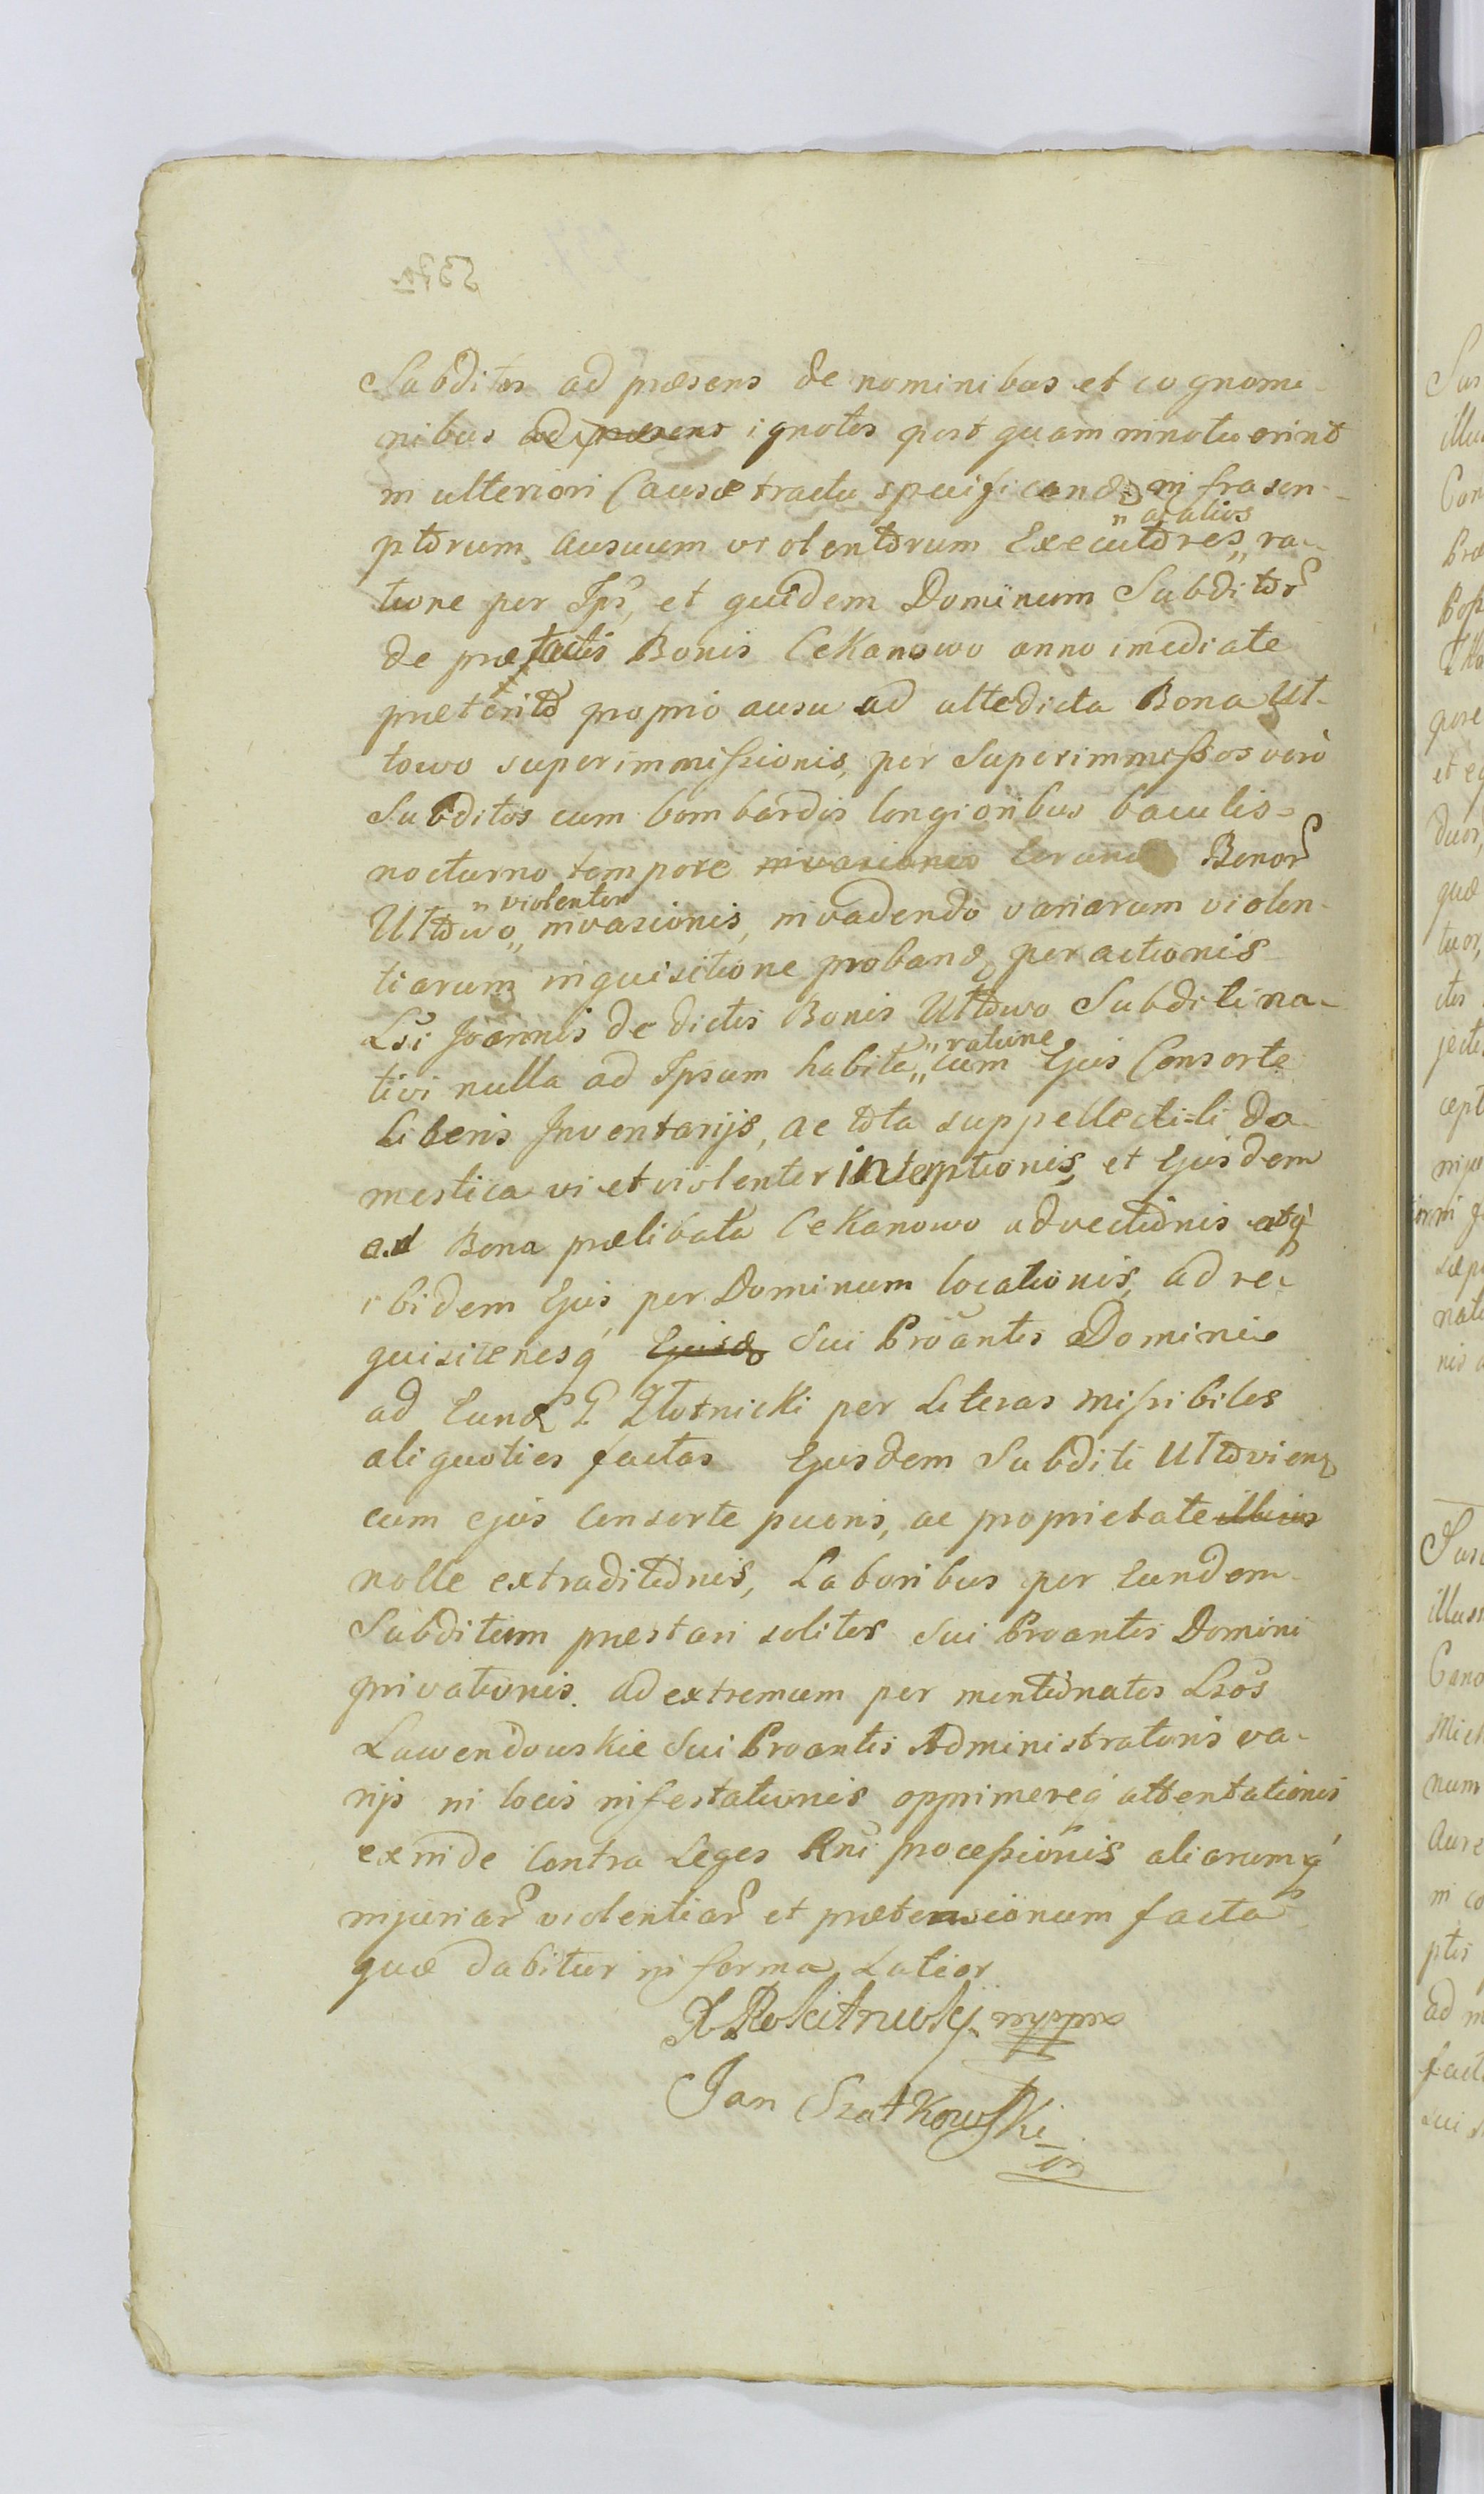 Subditos ad præsens de nominibus et cognomi-
nibus ad præsens ignotos post quam innotuerint
in ulteriori Causæ tractu specificand in frascri-
ptorum ausuum violentorum Executores „ ra-
„ ac alios
tione per Ips, et quidem Dominum Subditor
de prætactis Bonis Cekanowo anno imediate
præterito proprio ausu ad attedicta Bona Ut-
towo superimmissionis, per Superimmissos vero
Subditos cum bombardis longioribus baculis
nocturno tempore invasionis Eorund Bonor
„ violenter
Uttowo „ invasionis, invadendo variarum violen-
tiarum inquisitione proband peractionis
Lsi Joannis de dictis Bonis Uttowo Subditi na-
„ ratione
tivi nulla ad Ipsum habita „ cum Ejus Consorte
Liberis Inventarijs, ac tota suppellectili do-
mestica vi et violenter interceptionis, et Ejusdem
ad Bona prælibata Cekanowo advectionis atq
ibidem Ejus per Dominum locationis, ad re-
quisitionesq Ejusd Sui Proantis Domini
ad Eund G Złotnicki per Literas missibiles
aliquoties factas Ejusdem Subditi Uttovien
cum ejus Consorte pueris, ac proprietate illius
nolle extraditionis, Laboribus per Eundem
Subditum præstari solitis Sui Proantis Domini
privationis. ad extremum per mentionatos Lsos
Lawendowskie Sui Proantis Administratoris va-
rijs in locis infestationis opprimereq attentationis
exinde Contra Leges Rni processionis aliarumq
injuriar violentiar et prætensionum facta
quæ dabitur in forma Latior
Jan Szatkowski